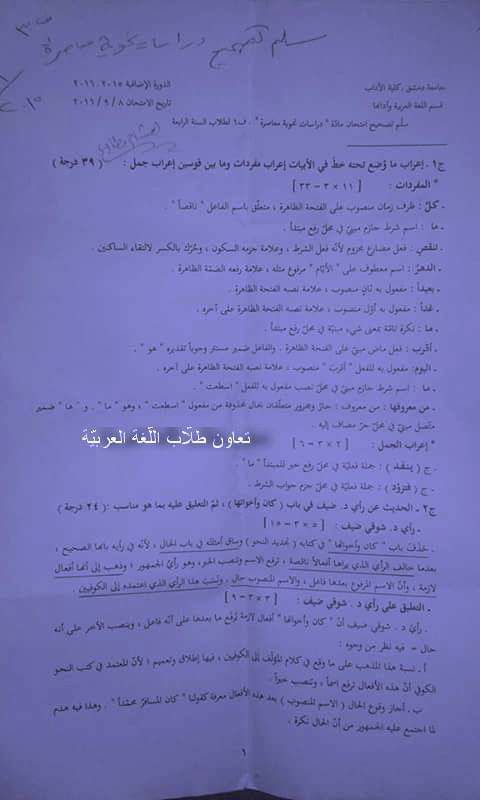 سلم تصحيح دراسات نحوية معاصرة
جامعة دمشق - كلية الآداب
الدورة الإضافية ٢٠١٥ - ٢٠١٦
قسم اللغة العربية وآدابها
تاريخ الامتحان ٨ / ٩ / ٢٠١٦
سلّم تصحيح امتحان مادّة " دراسات نحوية معاصرة " . ف١ لطلاب السنة الرابعة
ج١ ـ إعراب ما وُضع تحته خطّ في الأبيات إعراب مفردات وما بين قوسين إعراب جمل : ( ٣٩ درجة )
* المفردات : [ ١١ × ٣ = ٣٣ ]
ـ كلّ : ظرف زمان منصوب على الفتحة الظاهرة ، متعلّق باسم الفاعل " ناقصاً " .
ـ ما : اسم شرط جازم مبنيّ في محلّ رفع مبتدأ .
ـ تنقص : فعل مضارع مجزوم لأنّه فعل الشرط ، وعلامة جزمه السكون ، وحُرّك بالكسر لالتقاء الساكنين .
ـ الدهرُ : اسم معطوف على " الأيّام " مرفوع مثله ، علامة رفعه الضمّة الظاهرة .
ـ بعيداً : مفعول به ثانٍ منصوب ، علامة نصبه الفتحة الظاهرة .
ـ غداً : مفعول به أوّل منصوب ، علامة نصبه الفتحة الظاهرة على آخره .
ـ ما : نكرة تامّة بمعنى شيء مبنيّة في محلّ رفع مبتدأ .
ـ أقرب : فعل ماض مبنيّ على الفتحة الظاهرة . والفاعل ضمير مستتر وجوباً تقديره " هو " .
ـ اليوم: مفعول به للفعل " أقرب " منصوب ، علامة نصبه الفتحة الظاهرة على آخره .
ـ ما : اسم شرط جازم مبنيّ في محلّ نصب مفعول به للفعل " اسطعت " .
ـ من معروفها : من معروف : جارّ ومجرور متعلّقان بحال محذوفة من مفعول " اسطعت " ، وهو " ما " . و " ها " ضمير
متّصل مبنيّ في محلّ جرّ مضاف إليه .
* إعراب الجمل : [ ٢ × ٣ = ٦ ]
تعاون طلّاب اللّغة العربيّة
ـ ج ( ينفد ) : جملة فعليّة في محلّ رفع خبر للمبتدأ " ما " .
ـ ج ( فتزوّد ) : جملة فعليّة في محلّ جزم جواب الشرط .
ج٢ ـ الحديث عن رأي د. شوقي ضيف في باب ( كان وأخواتها ) ، ثمّ التعليق عليه بما هو مناسب : ( ٢٤ درجة )
ـ رأي د. شوقي ضيف : [ ٥ × ٣ = ١٥ ]
. حَذَفَ باب " كان وأخواتها " في كتابه ( تجديد النحو ) وساق أمثلته في باب الحال ، لأنّه في رأيه بابها الصحيح ،
بعدها خالف الرأي الذي يراها أفعالاً ناقصة ، ترفع الاسم وتنصب الخبر، وهو رأيُ الجمهور ؛ وذهب إلى أنها أفعال
لازمة ، وأنّ الاسم المرفوع بعدها فاعل ، والاسم المنصوب حال ، ونسَبَ هذا الرأي الذي اعتمده إلى الكوفيين .
ـ التعليق على رأي د . شوقي ضيف : [ ٣ × ٣ = ٩ ]
. رأي د . شوقي ضيف أنّ " كان وأخواتها " أفعال لازمة تُرفع ما بعدها على أنّه فاعل ، وينصب الآخر على أنه
حال = فيه نظر من وجوه :
أ ـ نسبة هذا المذهب على ما وقع في كلام المؤلّف إلى الكوفيين ، فيها إطلاق وتعميم ؛ لأنّ المعتمد في كتب النحو
الكوفي أنّ هذه الأفعال ترفع اسماً ، وتنصب خبراً .
ب ـ أجاز وقوع الحال ( الاسم المنصوب ) بعد هذه الأفعال معرفة كقولنا " كان المسافرُ محمّداً " . وهذا فيه هدم
لما اجتمع عليه الجمهور من أنّ الحال نكرة .
١